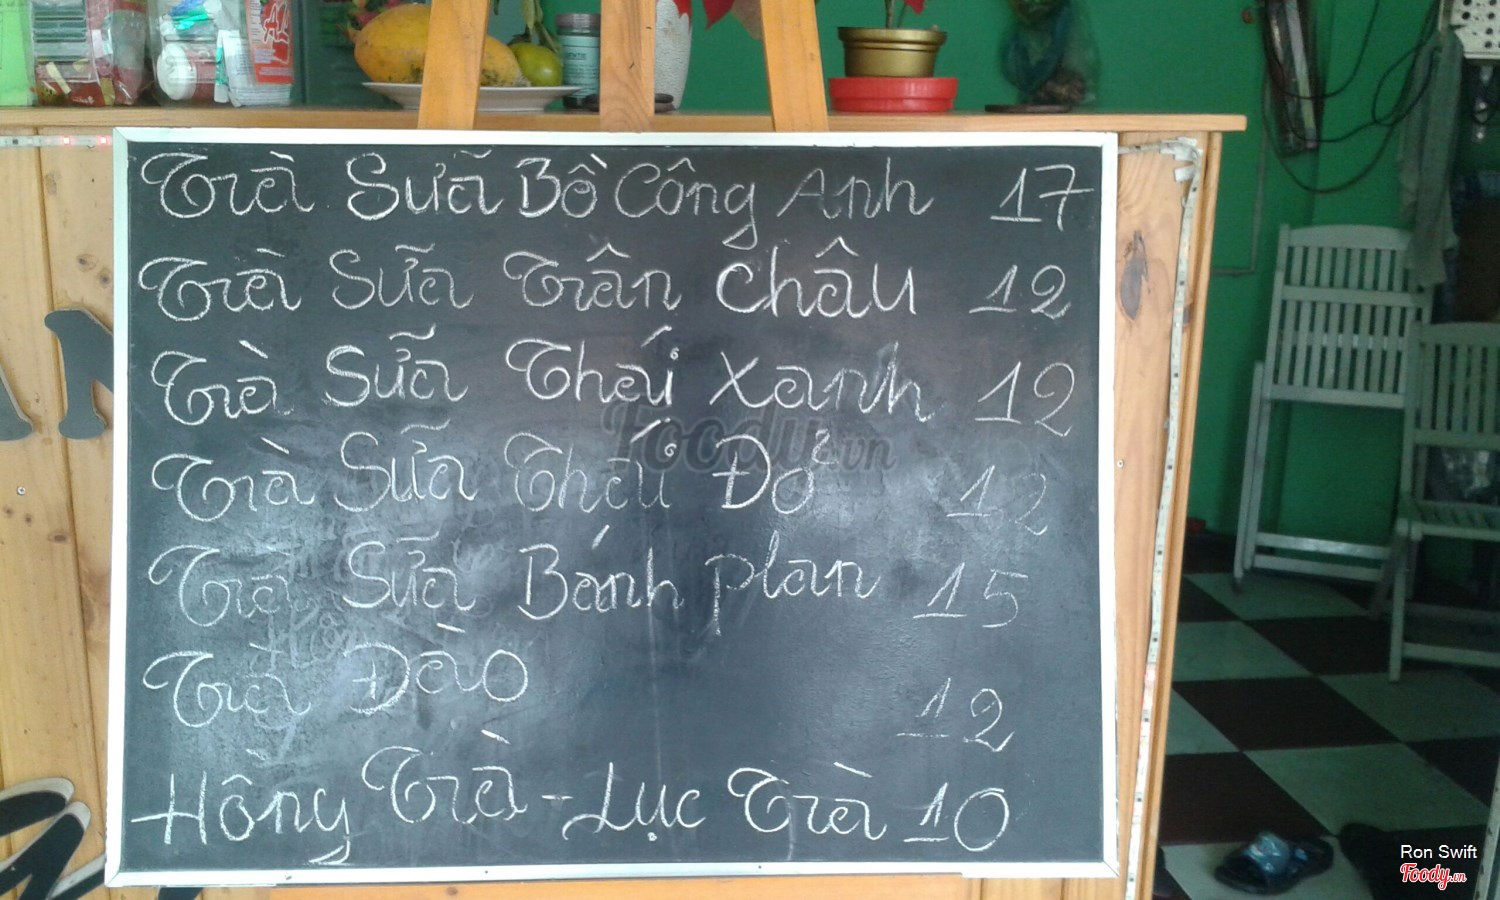 Trà Sữa Bồ Công Anh 17
Trà Sữa Trân Châu 12
Trà Sữa Thái Xanh 12
Trà Sữa Thái Đỏ 12
Trà Sữa Bánh plan 15
Trà Đào 12
Hồng Trà - Lục Trà 10
Foody.vn
Ron Swift
Foody.vn